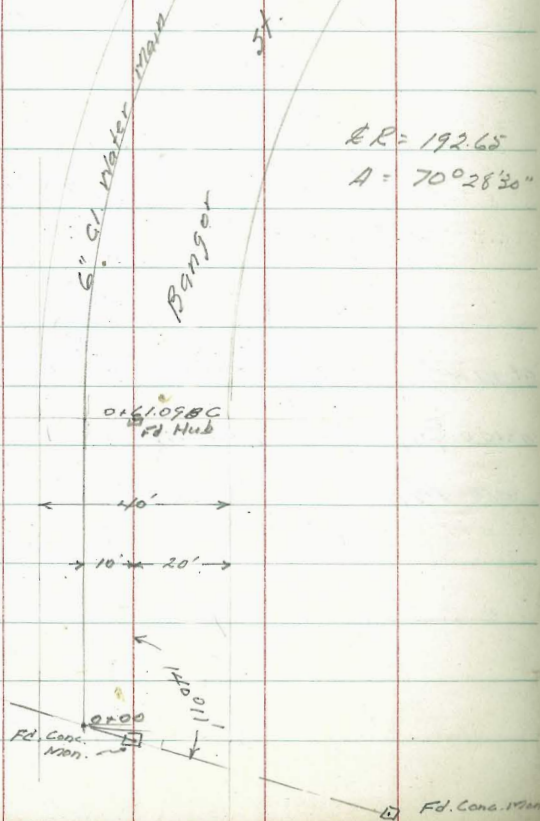 St.
6" C.I. Water Main
Bangor
℄ R = 192.65
Δ = 70°28'30"
0+61.09 BC
Fd Hub
40'
10' 20'
110°41'
0+00
Fd. Conc.
Mon.
Fd. Conc. Mon